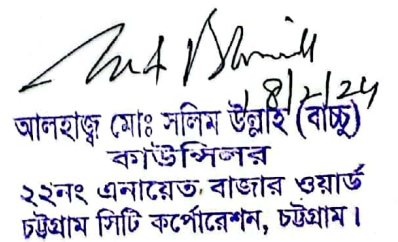 18/2/24
আলহাজ্ব মোঃ সলিম উল্লাহ (বাচ্চু)
কাউন্সিলর
২২নং এনায়েত বাজার ওয়ার্ড
চট্টগ্রাম সিটি কর্পোরেশন, চট্টগ্রাম।